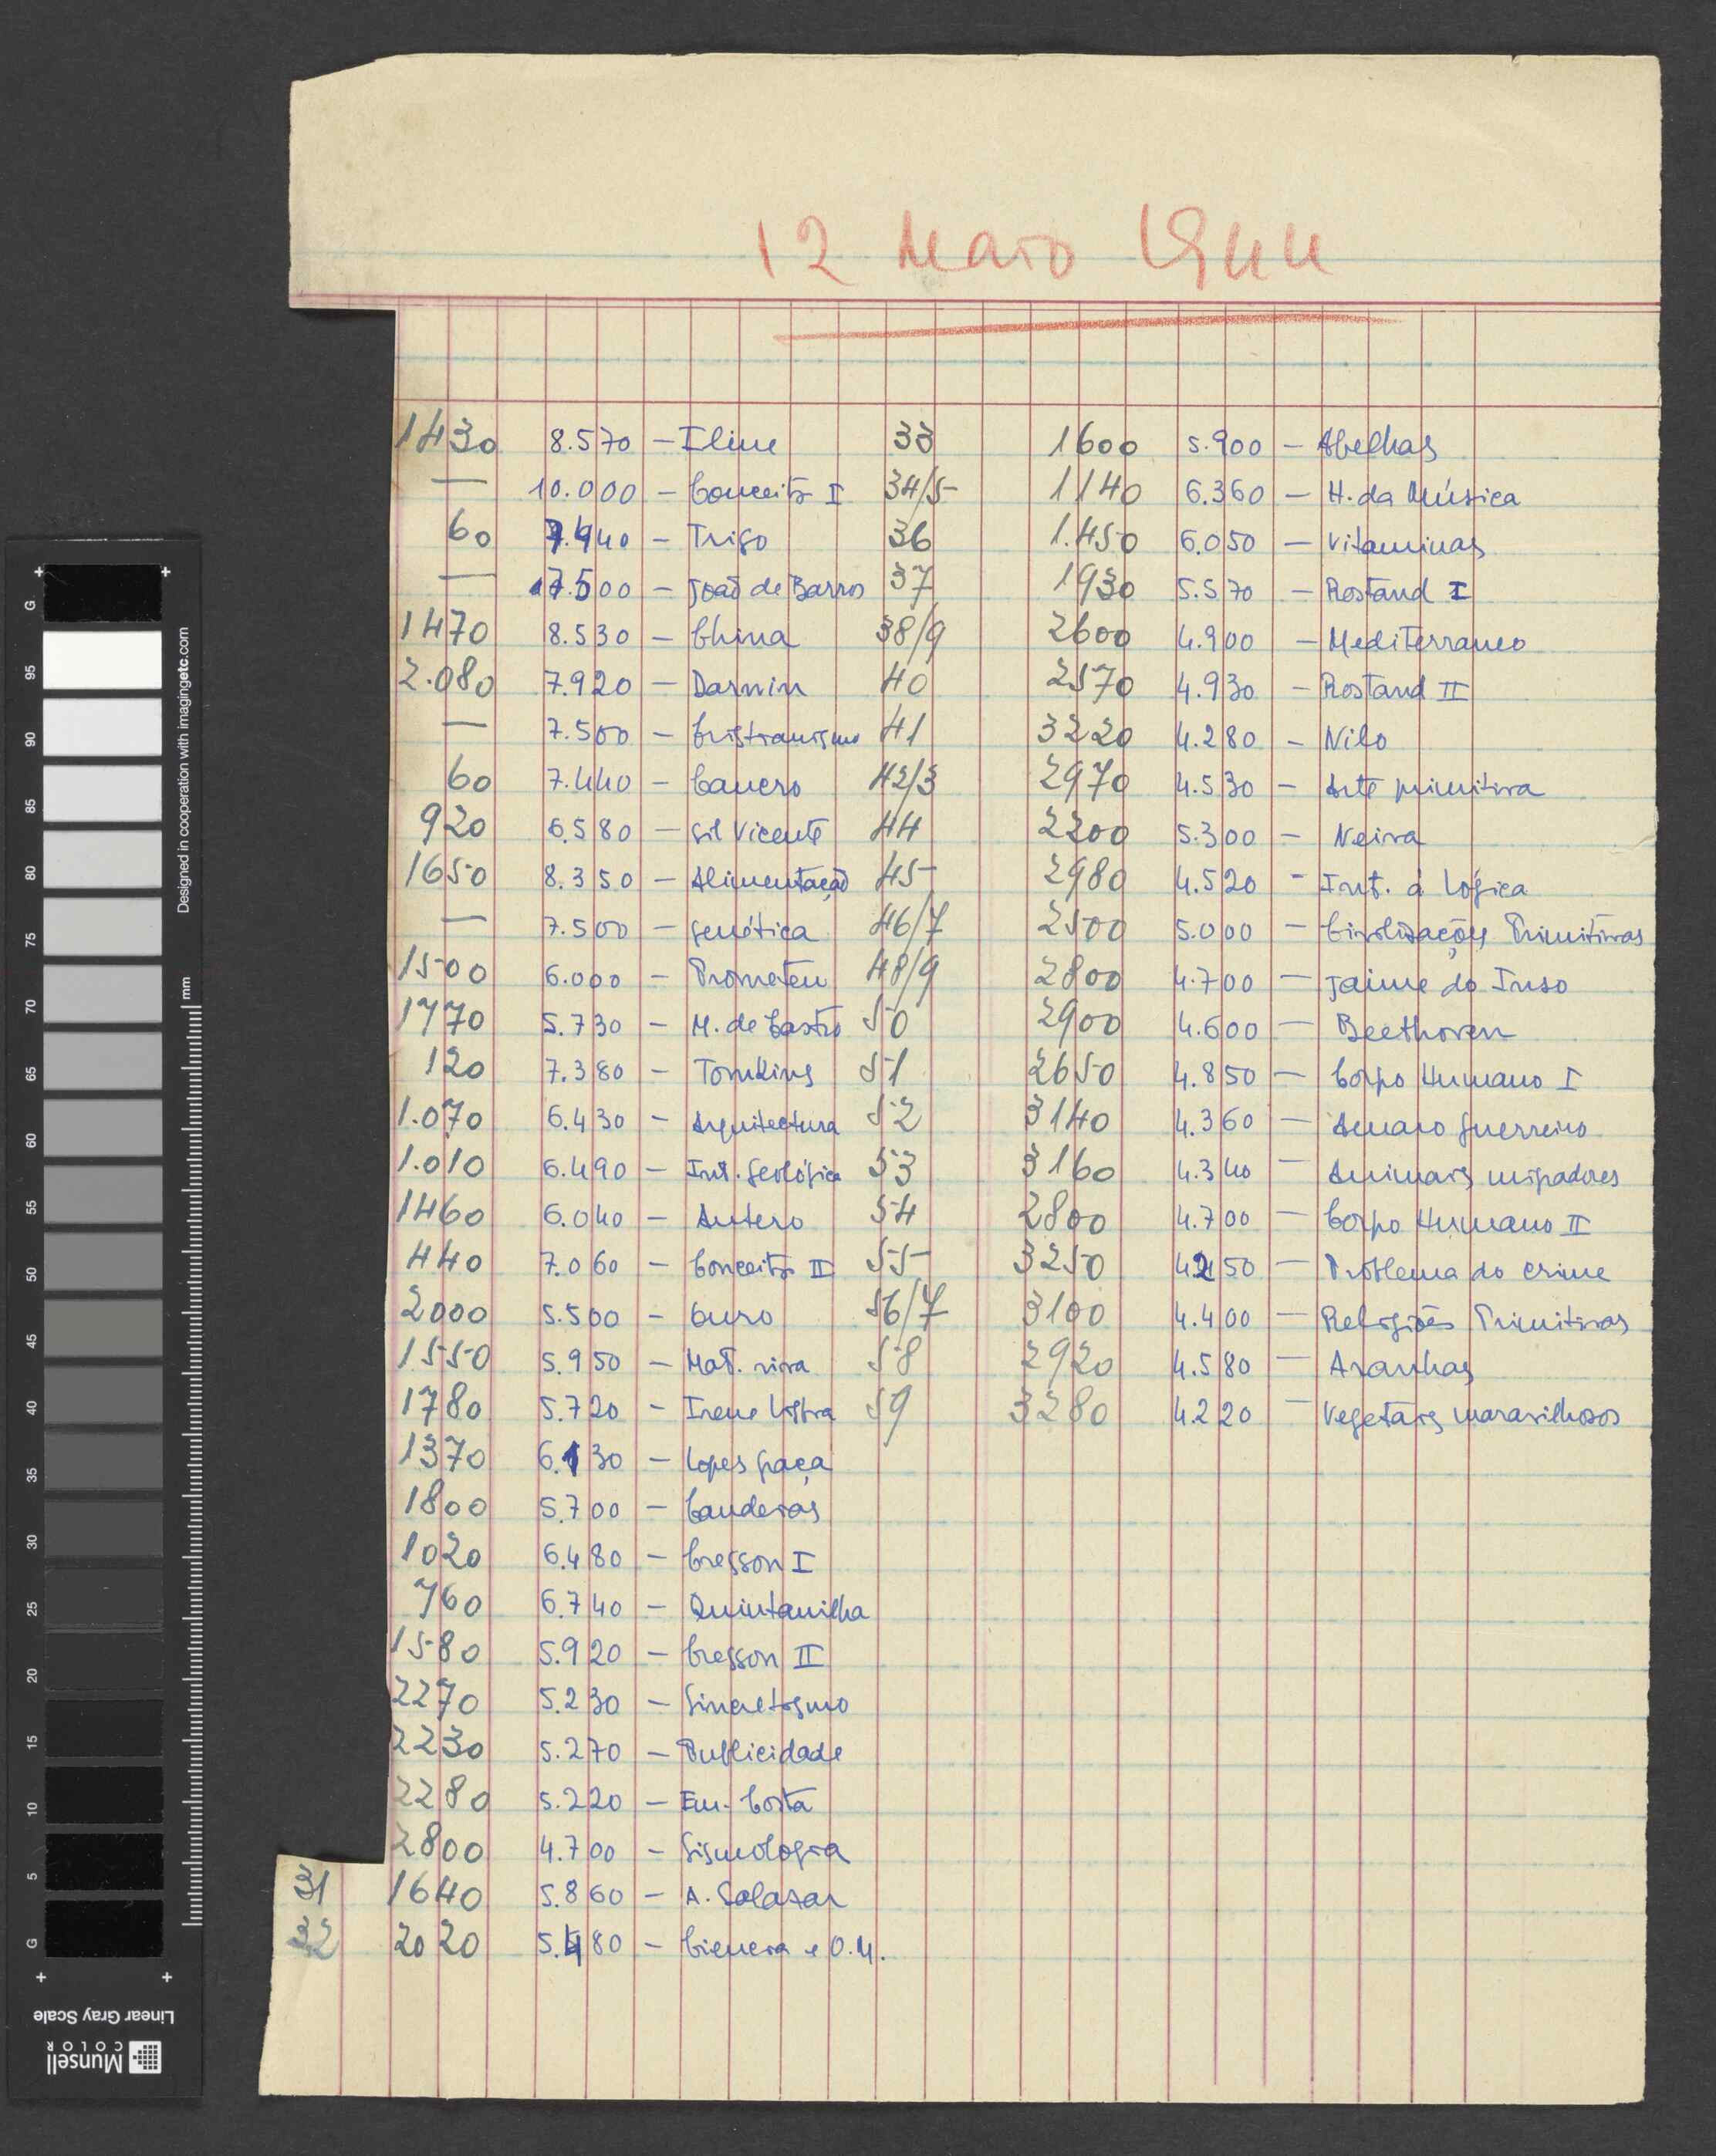 12 Maio 1944
1430 8.570 — Iline
— 10.000 — Conceito I
60 7.440 — Trigo
— 17.500 — João de Barros
1470 8.530 — China
2.080 7.920 — Darwin
— 7.500 — Cristianismo
60 7.440 — Cancro
920 6.580 — Gil Vicente
1650 8.350 — Alimentação
— 7.500 — Genética
1500 6.000 — Prometeu
1770 5.730 — M. de Castro
120 7.380 — Tomkins
1.070 6.430 — Arquitectura
1.010 6.490 — Int. Geológica
1460 6.040 — Antero
440 7.060 — Conceito II
2000 5.500 — Ouro
1550 5.950 — Mat. viva
1780 5.720 — Irene Lisboa
1370 6.130 — Lopes Graça
1800 5.700 — Candeias
1020 6.480 — Cresson I
760 6.740 — Quintanilha
1580 5.920 — Cresson II
2270 5.230 — Sincretismo
2230 5.270 — Publicidade
2280 5.220 — Em. Costa
2800 4.700 — Sismologia
31 1640 5.860 — A. Salazar
32 2020 5.480 — Ciencia e O.M.
33 1600 5.900 — Abelhas
34/5 1140 6.360 — H. da Música
36 1.450 6.050 — Vitaminas
37 1930 5.570 — Rostand I
38/9 2600 4.900 — Mediterraneo
40 2570 4.930 — Rostand II
41 3220 4.280 — Nilo
42/3 2970 4.530 — Arte primitiva
44 2200 5.300 — Neiva
45 2980 4.520 — Int. á Lógica
46/7 2500 5.000 — Civilizações Primitivas
48/9 2800 4.700 — Jaime do Inso
50 2900 4.600 — Beethoven
51 2650 4.850 — Corpo Humano I
52 3140 4.360 — Amaro Guerreiro
53 3160 4.340 — Animais migradores
54 2800 4.700 — Corpo Humano II
55 3250 4250 — Problema do crime
56/7 3100 4.400 — Religiões Primitivas
58 2920 4.580 — Aranhas
59 3280 4.220 — Vegetais maravilhosos
Designed in cooperation with imagingetc.com
mm
G 95 90 85 80 75 70 65 60 55 50 45 40 35 30 25 20 15 10 5 G
Linear Gray Scale
Munsell
COLOR